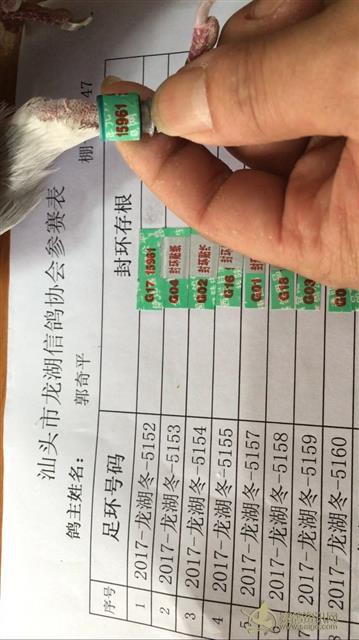 汕头市龙湖信鸽协会参赛表
鸽主姓名: 郭奇平 棚 47
序号 足环号码 封环存根
1 2017-龙湖冬-5152 G17 15961
2 2017-龙湖冬-5153 G04 封环贴纸
3 2017-龙湖冬-5154 G02
4 2017-龙湖冬-5155 G16
2017-龙湖冬-5157 G01
2017-龙湖冬-5158 G18
2017-龙湖冬-5159 G03
2017-龙湖冬-5160
15961